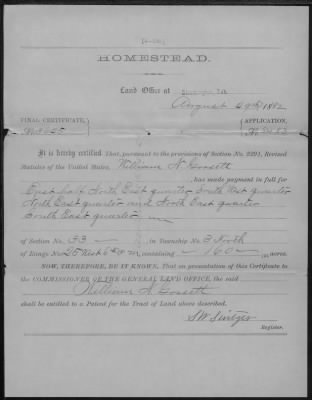 HOMESTEAD.
Land Office at
August 9th 1882
FINAL CERTIFICATE,
APPLICATION,
No.
No.
It is hereby certified That, pursuant to the provisions of Section No. 2291, Revised
Statutes of the United States, William N. Gossett
has made payment in full for
East half North East quarter South West quarter
North East quarter and North East quarter
South East quarter
of Section No. 33 in Township No. 3 North
of Range No. 25 West 6th P. M., containing 160 acres.
NOW, THEREFORE, BE IT KNOWN, That on presentation of this Certificate to
the COMMISSIONER OF THE GENERAL LAND OFFICE, the said
William N. Gossett
shall be entitled to a Patent for the Tract of Land above described.
S.W. Switzer
Register.